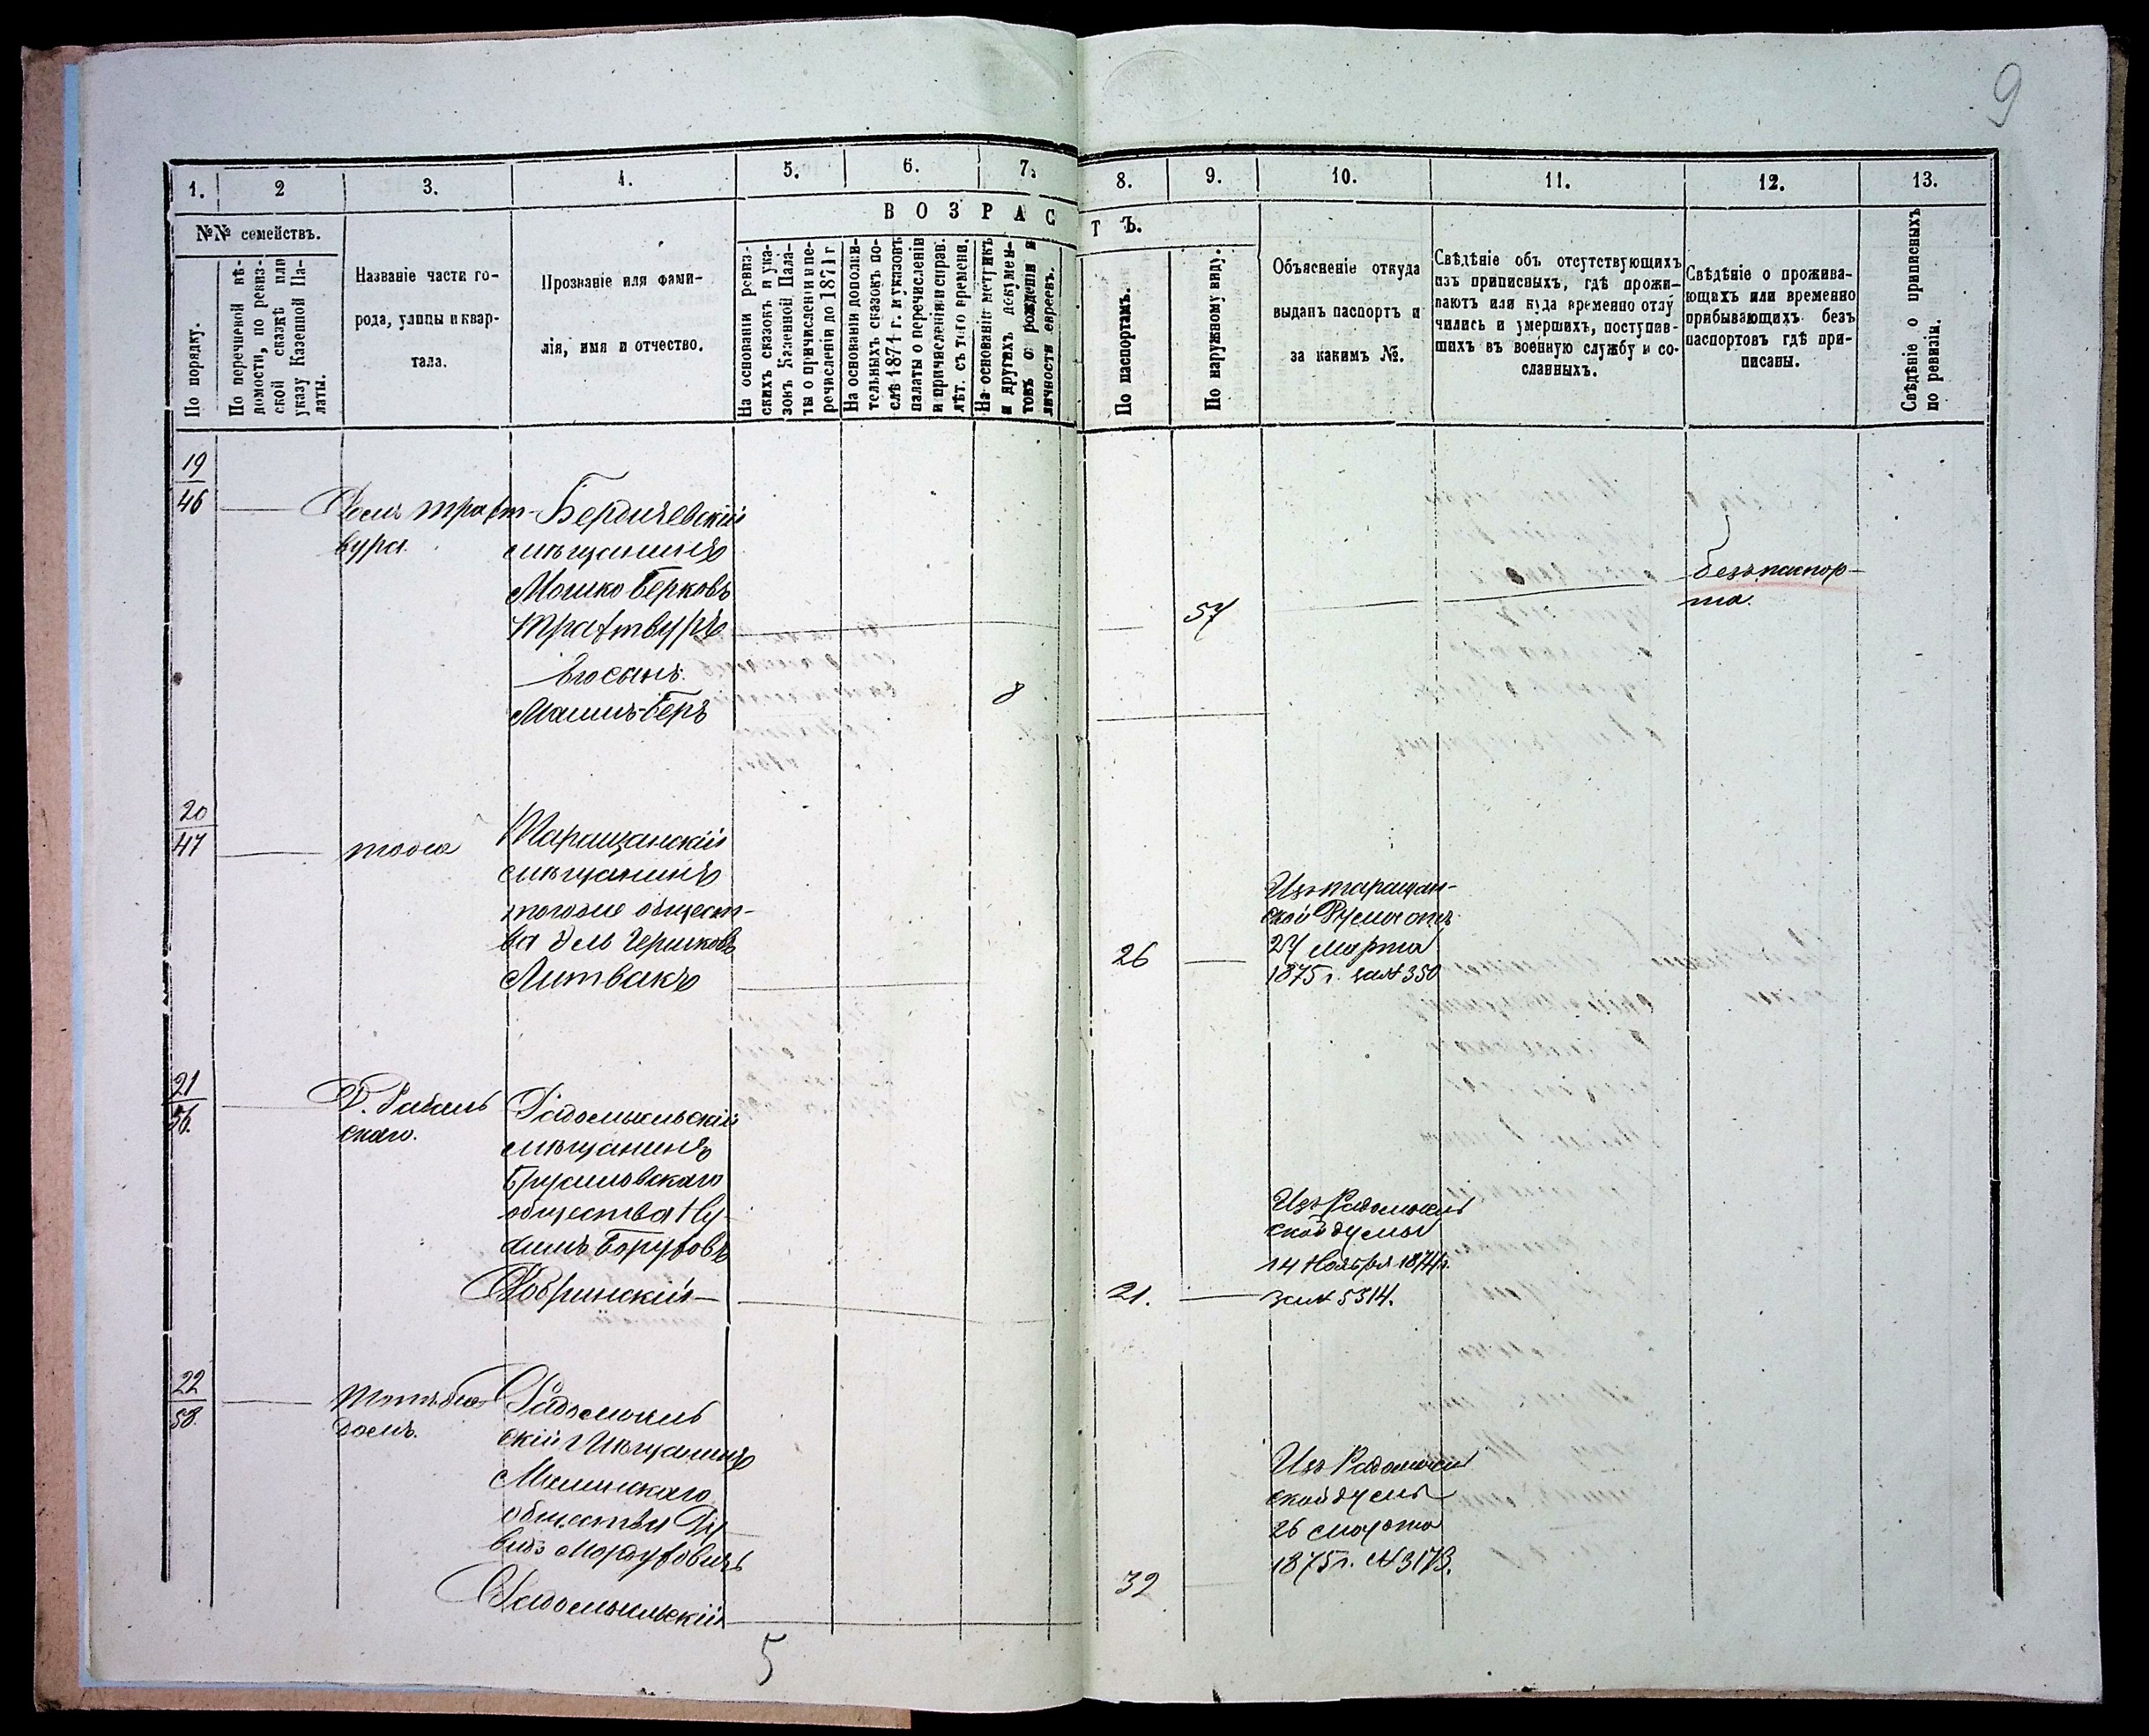 9
1. 2 3. 4. 5. 6. 7. 8. 9. 10. 11. 12. 13.
№№ семействъ.
По порядку.
По перечневой вѣ-
домости, по ревиз-
ской сказкѣ или
указу Казенной Па-
латы.
Названіе части го-
рода, улицы и квар-
тала.
Прозваніе или фами-
лія, имя и отчество.
ВОЗРАСТЪ.
На основаніи ревиз-
скихъ сказокъ и ука-
зовъ Казенной Пала-
ты о причисленіи и пе-
речисленіи до 1871 г
На основаніи дополни-
тельныхъ сказокъ по-
слѣ 1871 г. и указовъ
палаты о перечисленіи
и причисленіи и справ.
лѣт. съ того времени.
На основаніи метрикъ
и другихъ докумен-
товъ о рожденіи и
личности евреевъ.
По паспортамъ.
По наружному виду.
Объясненіе откуда
выданъ паспортъ и
за какимъ №.
Свѣдѣніе объ отсутствующихъ
изъ приписныхъ, гдѣ прожи-
ваютъ или куда временно отлу
чились и умершихъ, поступив-
шихъ въ военную службу и со-
сланныхъ.
Свѣдѣніе о прожива-
ющихъ или временно
прибывающихъ безъ
паспортовъ гдѣ при-
писаны.
Свѣдѣніе о приписныхъ
по ревизіи.
19
46
Домъ Трахт-
вура.
Бердичевскій
мѣщанинъ
Мошко Берковъ
Трахтвуръ
57
безъ паспор-
та.
Его сынъ:
Беръ
8
20
47
тоже
Таращанскій
мѣщанинъ
того же общест-
ва Гершковъ
Литвакъ
26
Изъ таращан-
ской Думы отъ
27 марта
1875 г. за № 350
21
56.
Д.
скаго.
Радомысльскій
мѣщанинъ
Брусиловскаго
общества Ну-
химъ Боруховъ
Кобринскій
21.
Изъ Радомысль
ской думы
14 Ноября 1874 г.
за № 5314.
22
58.
Тотъ же
домъ.
Радомысль
скій мѣщанинъ
Малинскаго
общества Ду-
видъ Мордуховичъ
Радомысльскій
32
Изъ Радомысль
ской думы
26 марта
1875 г. № 3173.
5